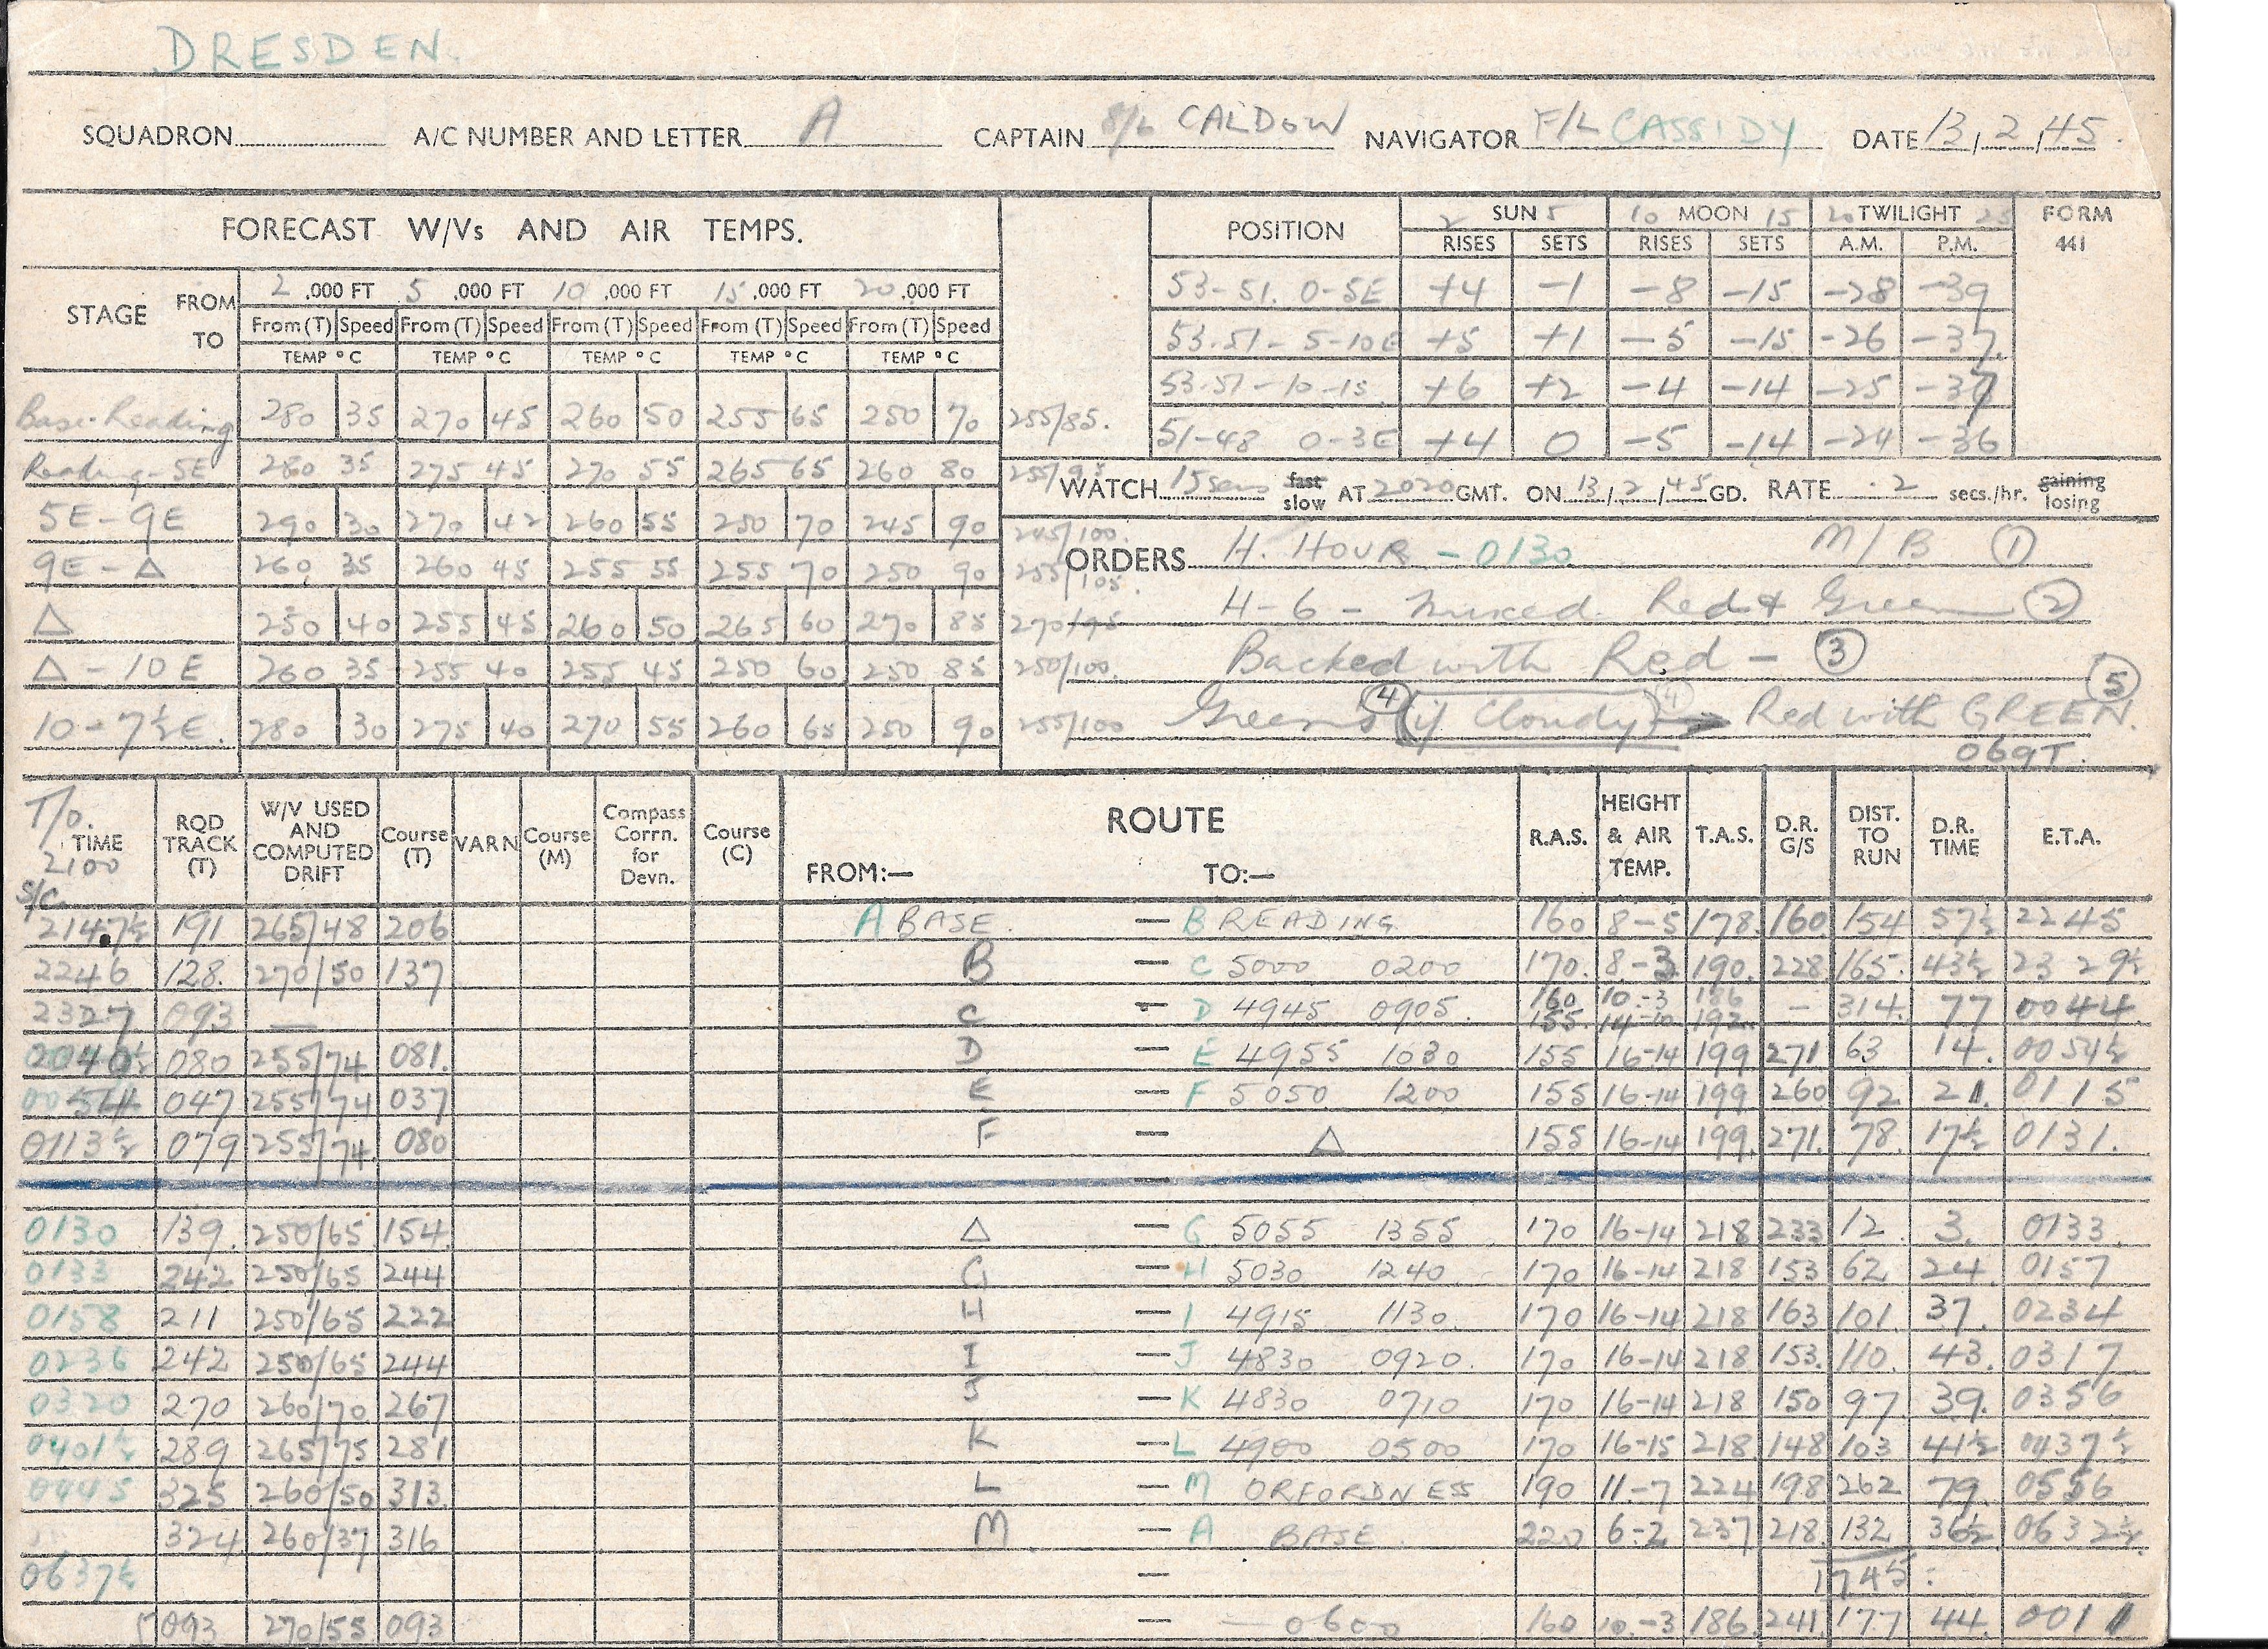 DRESDEN.
SQUADRON A/C NUMBER AND LETTER A CAPTAIN S/L CALDOW NAVIGATOR F/L CASSIDY DATE 13/2/45.
FORECAST W/Vs AND AIR TEMPS.
STAGE FROM TO 2 ,000 FT 5 ,000 FT 10 ,000 FT 15 ,000 FT 20 ,000 FT
From (T) Speed From (T) Speed From (T) Speed From (T) Speed From (T) Speed
TEMP °C TEMP °C TEMP °C TEMP °C TEMP °C
Base-Reading 280 35 270 45 260 50 255 65 250 70 255/85.
Reading-5E 280 35 275 45 270 55 265 65 260 80 255/95
5E-9E 290 30 270 42 260 55 250 70 245 90 245/100.
9E-△ 260 35 260 45 255 55 255 70 250 90 255/105.
△ 250 40 255 45 260 50 265 60 270 85 270/95
△-10E 260 35 255 40 255 45 250 60 250 85 250/100.
10-7½E. 280 30 275 40 270 55 260 65 250 90 255/100
POSITION 2 SUN 5 10 MOON 15 20 TWILIGHT 25 FORM 441
RISES SETS RISES SETS A.M. P.M.
53-51. 0-5E +4 -1 -8 -15 -28 -39
53-51-5-10E +5 +1 -5 -15 -26 -37.
53-51-10-15 +6 +2 -4 -14 -25 -37
51-48 0-3E +4 0 -5 -14 -24 -36
WATCH 15 secs fast slow AT 2020 GMT. ON 13/2/45 GD. RATE .2 secs./hr. gaining losing
ORDERS H. HOUR - 0130. M/B ①
H-6 - Mixed Red & Green ②
Backed with Red - ③
Greens ④ (if cloudy) ④ → Red with GREEN. ⑤
069T.
T/O. 2100 S/C
TIME RQD TRACK (T) W/V USED AND COMPUTED DRIFT Course (T) VARN Course (M) Compass Corrn. for Devn. Course (C) ROUTE FROM:— TO:— R.A.S. HEIGHT & AIR TEMP. T.A.S. D.R. G/S DIST. TO RUN D.R. TIME E.T.A.
2147½ 191 265/48 206 A BASE. — B READING 160 8-5 178. 160. 154 57½ 2245
2246 128. 270/50 137 B — C 5000 0200 170. 8-3 190. 228 165. 43½ 2329½
2327 093 — C - D 4945 0905. 160 155. 10.-3 14-10 186 192. - 314. 77 0044
080 255/74 081. D — E 4955 1030 155 16-14 199 271 63 14. 0054½
0054 047 255/74 037 E — F 5050 1200 155 16-14 199 260 92 21. 0115
0113½ 079 255/74 080 F — △ 155 16-14 199. 271. 78. 17½ 0131.
—
0130 139. 250/65 154 △ — G 5055 1355 170 16-14 218 233 12 3. 0133.
0133 242 250/65 244 G — H 5030 1240 170 16-14 218 153 62 24 0157
0158 211 250/65 222 H — I 4915 1130. 170 16-14 218 163 101. 37. 0234
0236 242 250/65 244 I — J 4830 0920. 170 16-14 218 153. 110. 43. 0317
0320 270 260/70 267 J — K 4830 0710 170 16-14 218 150 97. 39. 0356
0401½ 289 265/75 281 K — L 4900 0500 170 16-15 218 148 103 41½ 0437½
0445 325 260/50 313. L — M ORFORDNESS 190 11.-7 224 198 262 79. 0556
324 260/37 316 M — A BASE. 220 6-2 237 218 132 36½ 0632½.
0637½ — 1745:
093 270/55 093 — 0600 160 10.-3 186. 241. 177 44. 0011